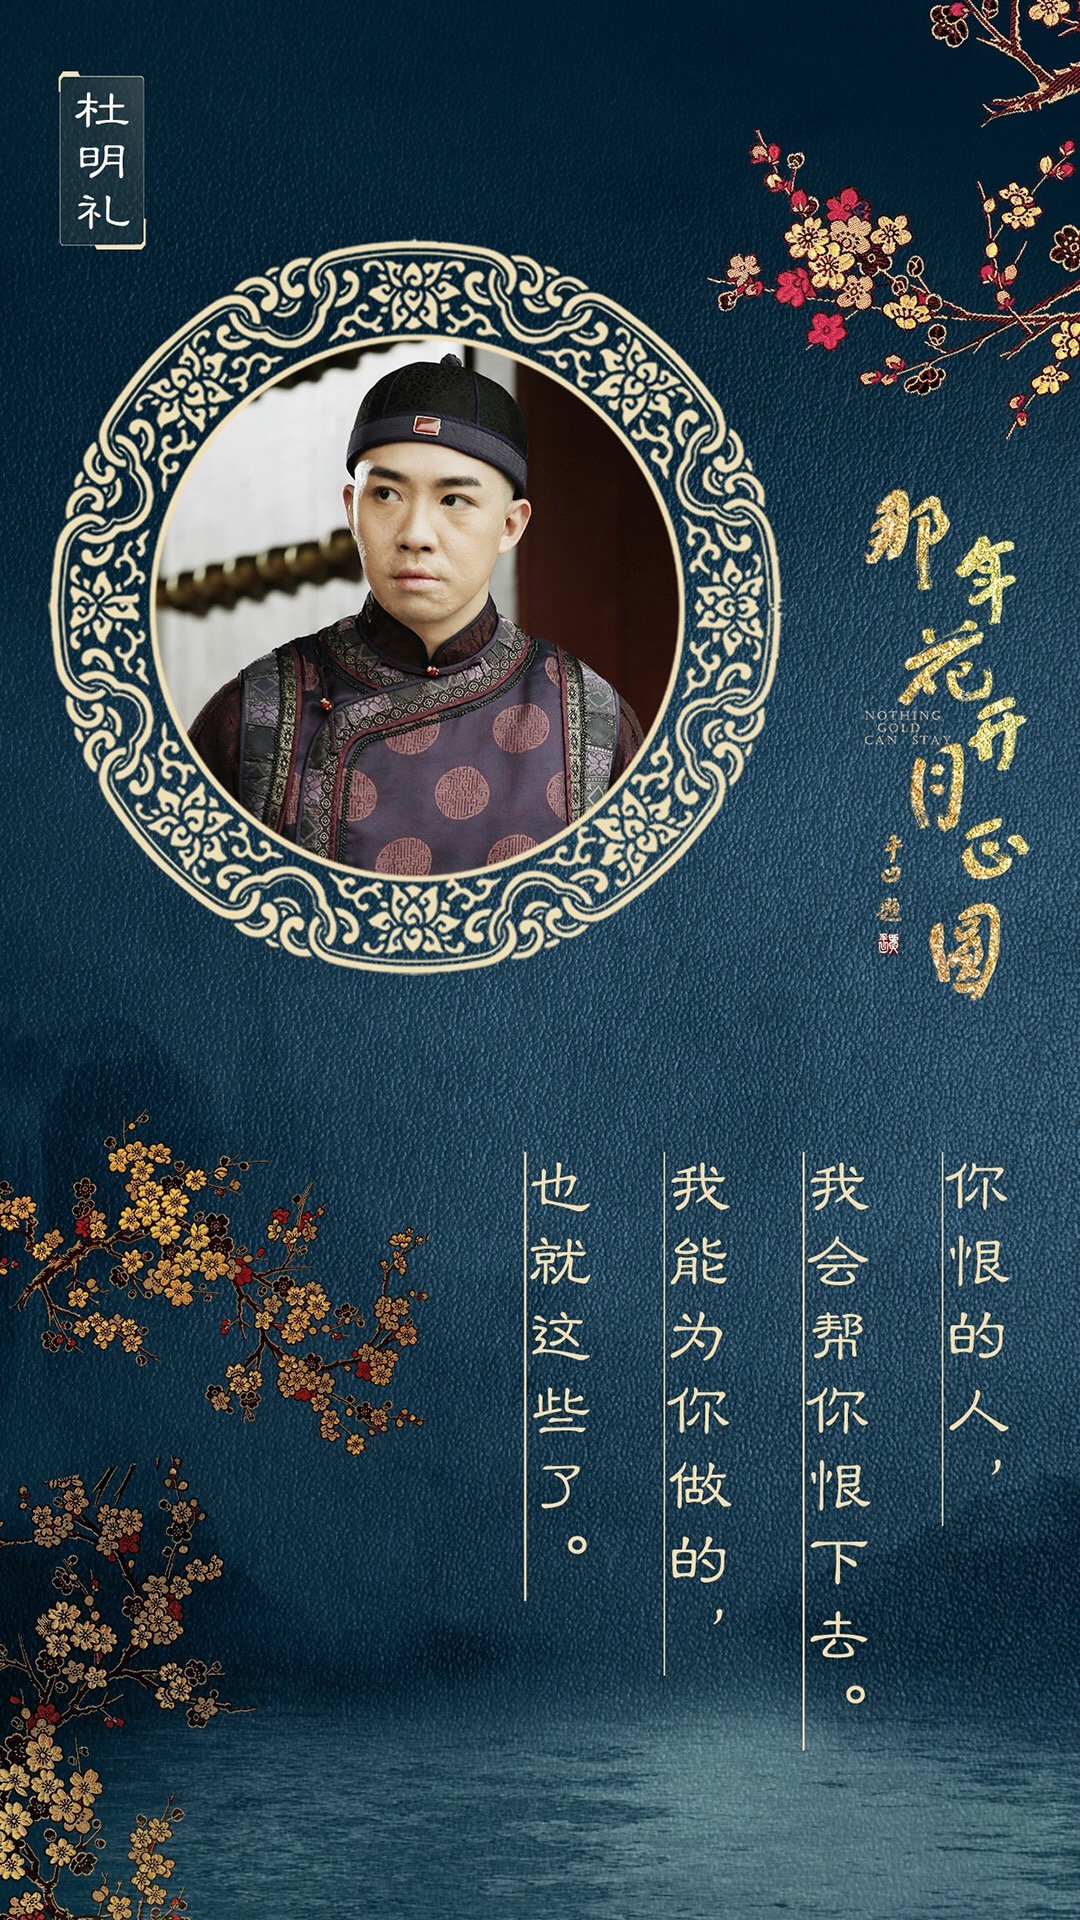 杜明礼
那年花开月正圆
NOTHING
GOLD
CAN STAY
你恨的人，
我会帮你恨下去。
我能为你做的，
也就这些了。